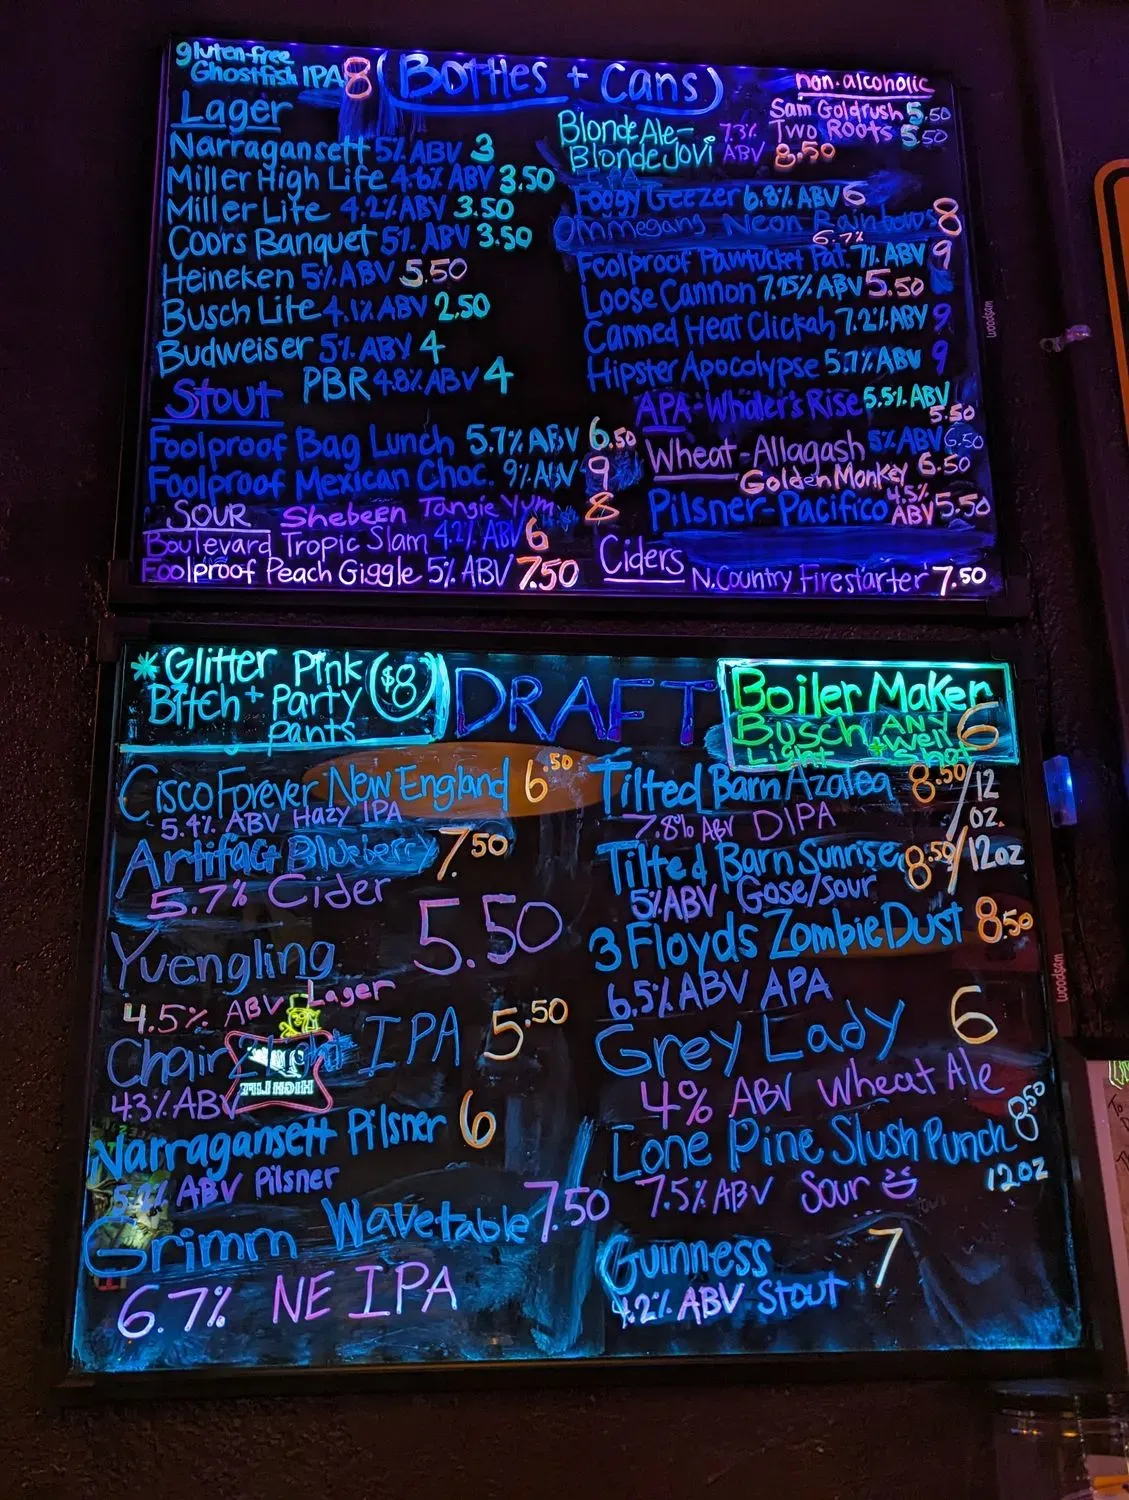 gluten-free
Ghostfish IPA 8
(Bottles + Cans)
Lager
Narragansett 5% ABV 3
Miller High Life 4.6% ABV 3.50
Miller Lite 4.2% ABV 3.50
Coors Banquet 5% ABV 3.50
Heineken 5% ABV 5.50
Busch Lite 4.1% ABV 2.50
Budweiser 5% ABV 4
PBR 4.8% ABV 4
Stout
Foolproof Bag Lunch 5.7% ABV 6.50
Foolproof Mexican Choc. 9% ABV 9
Sour Shebeen Tangie Yum 8
Boulevard Tropic Slam 4.2% ABV 6
Foolproof Peach Giggle 5% ABV 7.50
non-alcoholic
Sam Goldrush 5.50
Two Roots 5.50
Blonde Ale-
Blonde Jovi 7.3% ABV 8.50
Foogy Geezer 6.8% ABV 6
Ommegang Neon Rainbows 8
6.7%
Foolproof Pawtucket Pat. 7% ABV 9
Loose Cannon 7.25% ABV 5.50
Canned Heat Clickah 7.2% ABV 9
Hipster Apocolypse 5.7% ABV 9
APA-Whaler's Rise 5.5% ABV
5.50
Wheat-Allagash 5% ABV 6.50
Golden Monkey 6.50
Pilsner-Pacifico 4.5% ABV 5.50
Ciders
N.Country Firestarter 7.50
woodsam
*Glitter Pink
Bitch + Party
Pants
($8)
DRAFT
Boiler Maker
Busch ANY 6
Light + Well Shot
Cisco Forever New England 6.50
5.4% ABV Hazy IPA
Artifact Blueberry 7.50
5.7% Cider
Yuengling 5.50
4.5% ABV Lager
Chair IPA 5.50
4.3% ABV
HIGH LIFE
Narragansett Pilsner 6
ABV Pilsner
Grimm Wavetable 7.50
6.7% NE IPA
Tilted Barn Azalea 8.50/12 oz.
7.8% ABV DIPA
Tilted Barn Sunrise 8.50/12oz
5% ABV Gose/Sour
3 Floyds Zombie Dust 8.50
6.5% ABV APA
Grey Lady 6
4% ABV Wheat Ale
Lone Pine Slush Punch 8.50
12oz
7.5% ABV Sour
Guinness 7
4.2% ABV Stout
woodsam